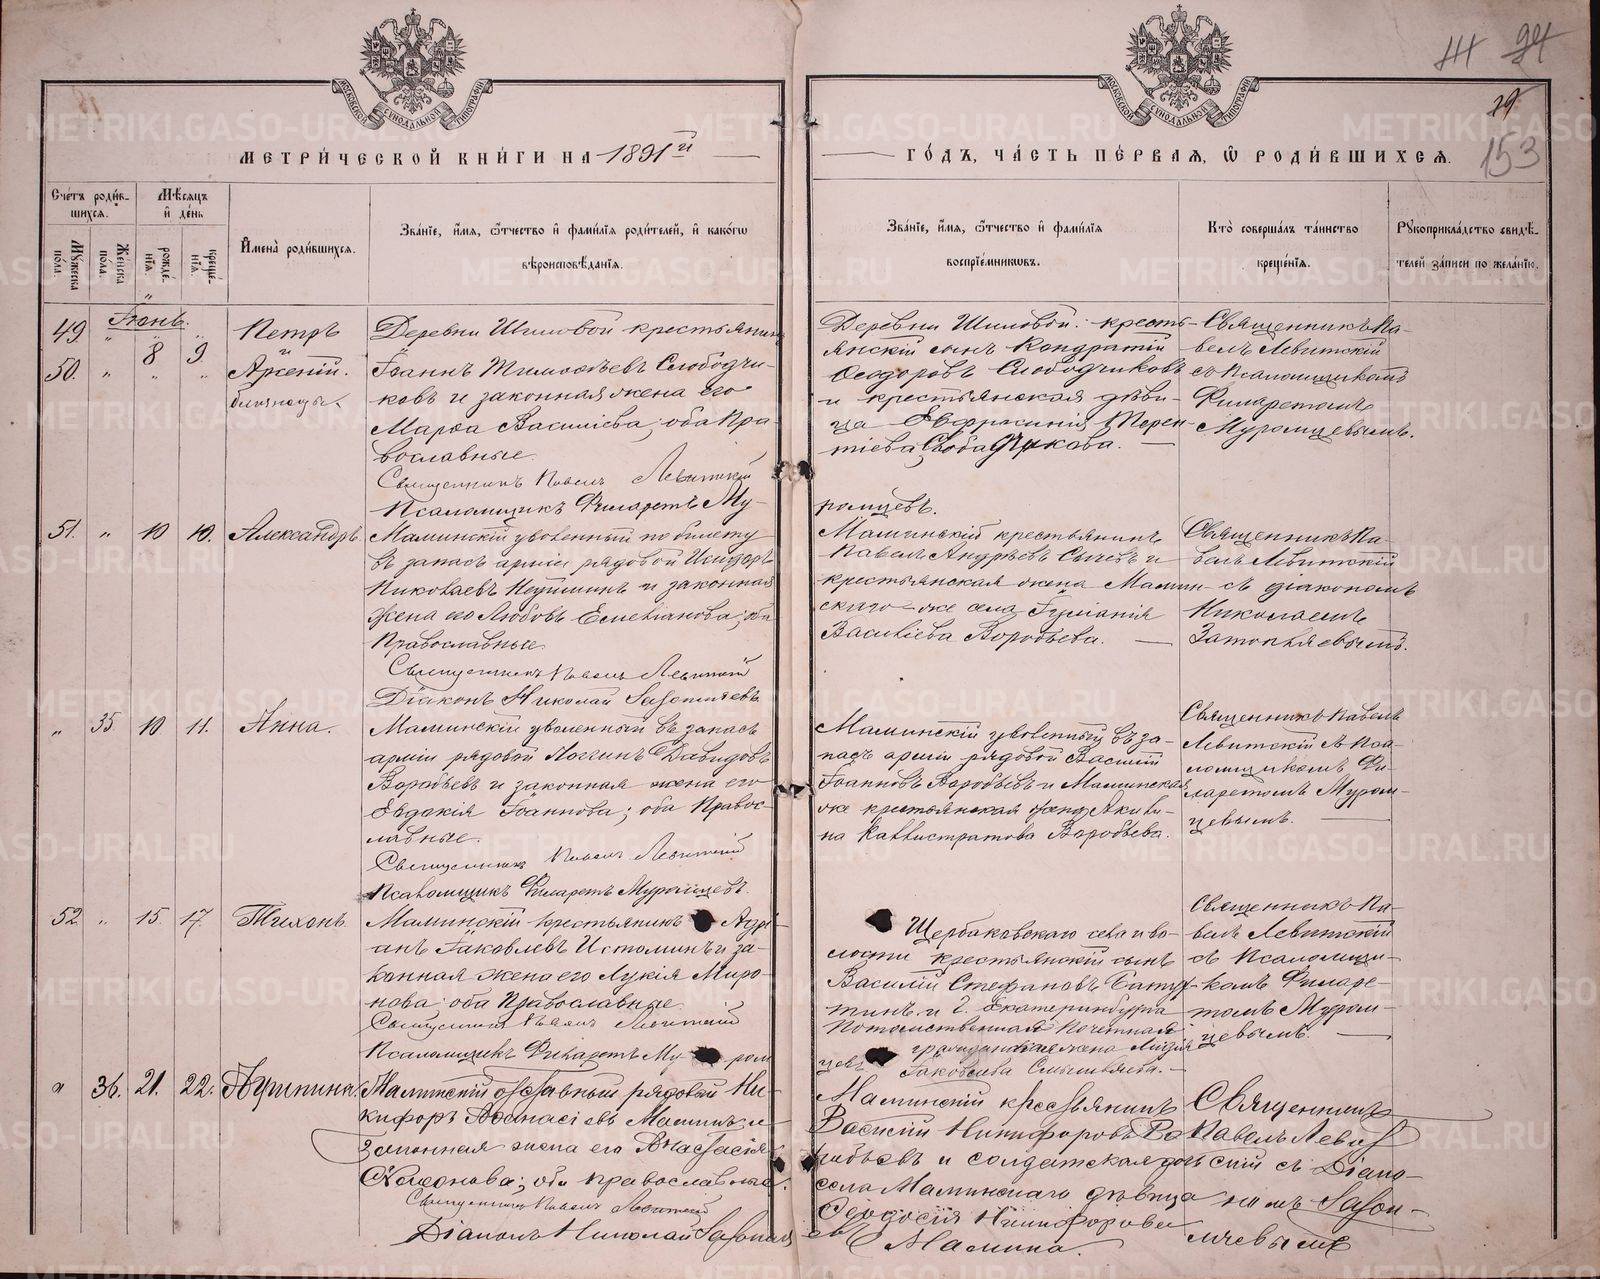 МОСКОВСКОЙ СѴНОДАЛЬНОЙ ТИПОГРАФІИ
МОСКОВСКОЙ СѴНОДАЛЬНОЙ ТИПОГРАФІИ
29
153
МЕТРИЧЕСКОЙ КНИГИ НА 1891й
ГОДЪ, ЧАСТЬ ПЕРВАЯ, Ѡ РОДИВШИХСЯ.
Счетъ родив-
шихся.
Мужеска пола.
Женска пола.
Мѣсяцъ
и день
рожде-
нія.
креще-
нія.
Имена родившихся.
Званіе, имя, ѿтчество и фамилія родителей, и какогѡ
вѣроисповѣданія.
Званіе, имя, ѿтчество и фамилія
воспріемникѡвъ.
Кто совершалъ таинство
крещенія.
Рукоприкладство свидѣ-
телей записи по желанію.
Іюнь.
49 " 8 9 Петръ
и
50. " " " Арсеній.
близнецы.
Деревни Шиловой крестьянинъ
Іоаннъ Тимоѳеевъ Слободчи-
ковъ и законная жена его
Марѳа Васильева; оба пра-
вославные.
Священникъ Павелъ Левитскій
Псаломщикъ Филаретъ Му-
Деревни Шиловой: кресть-
янскій сынъ Кондратій
Ѳеодоровъ Слободчиковъ
и крестьянская дѣви-
ца Евфросинія Терен-
тіева Слободчикова.
ромцевъ.
Священникъ Па-
велъ Левитскій
съ Псаломщикомъ
Филаретомъ
Муромцевымъ.
51. " 10 10. Александръ.
Маминскій уволенный по билету
въ запасъ арміи рядовой Исидоръ
Николаевъ и законная
жена его Любовь Емельянова; оба
Православные
Священникъ Павелъ Левитскій
Діаконъ Николай Затопляевъ
Маминскій крестьянинъ
Павелъ Андреевъ Сычевъ и
крестьянская жена Мамин-
скаго-же села Іуліанія
Васильева Воробьева.
Священникъ Па-
велъ Левитскій
съ діакономъ
Николаемъ
Затопляевымъ.
" 35. 10 11. Анна.
Маминскій уволенный въ запасъ
арміи рядовой Логгинъ Давидовъ
Воробьевъ и законная жена его
Евдокія Іоаннова; оба Правос-
лавные.
Священникъ Павелъ Левитскій
Псаломщикъ Филаретъ Муромцевъ.
Маминскій уволенный въ за-
пасъ арміи рядовой Василій
Іоанновъ Воробьевъ и Маминская
же крестьянская жена Акили-
на Каллистратова Воробьева.
Священникъ Павелъ
Левитскій съ Пса-
ломщикомъ Фи-
ларетомъ Муром-
цевымъ.
52. " 15. 17. Тихонъ.
Маминскій крестьянинъ Адрі-
анъ Іаковлевъ Истоминъ и за-
конная жена его Лукія Миро-
нова; оба Православные.
Священникъ Павелъ Левитскій
Псаломщикъ Филаретъ Му ром
Щербаковскаго села и во-
лости крестьянскій сынъ
Василій Стефановъ Бату-
тинъ. и г. Екатеринбурга
Потомственная почетная
гражданская жена Лидія
цевъ Іаковлева
Священникъ Па-
велъ Левитскій
съ Псаломщи-
комъ Филаре-
томъ Муром-
цевымъ.
" 36. 21. 22. Агрипина.
Маминскій отставный рядовой Ни-
кифоръ Аѳанасіевъ Маминъ и
законная жена его Анастасія
оба православные.
Священникъ Павелъ Левитскій
Діаконъ Николай Затопля
Маминскій крестьянинъ
Василій Никифоровъ Во
робьевъ и солдатская дочь
села Маминскаго дѣвица
Ѳеодосія Никифорова
евъ Мамина.
Священникъ
Павелъ Левит
скій съ Діако-
номъ Затоп-
ляевымъ
METRIKI.GASO-URAL.RU